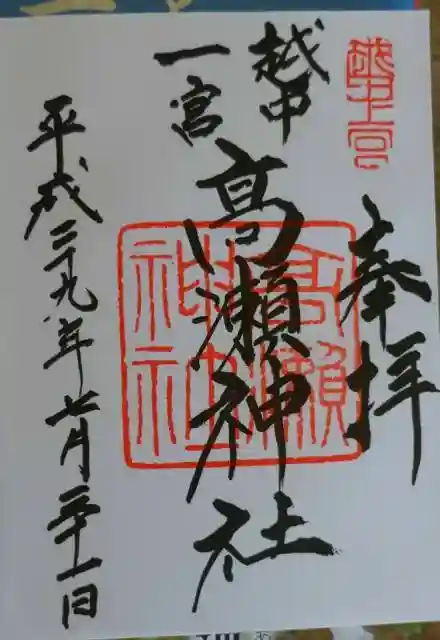 奉拝
越中
一宮
高瀬神社
平成二十九年七月二十一日
越中一宮
高瀬神社